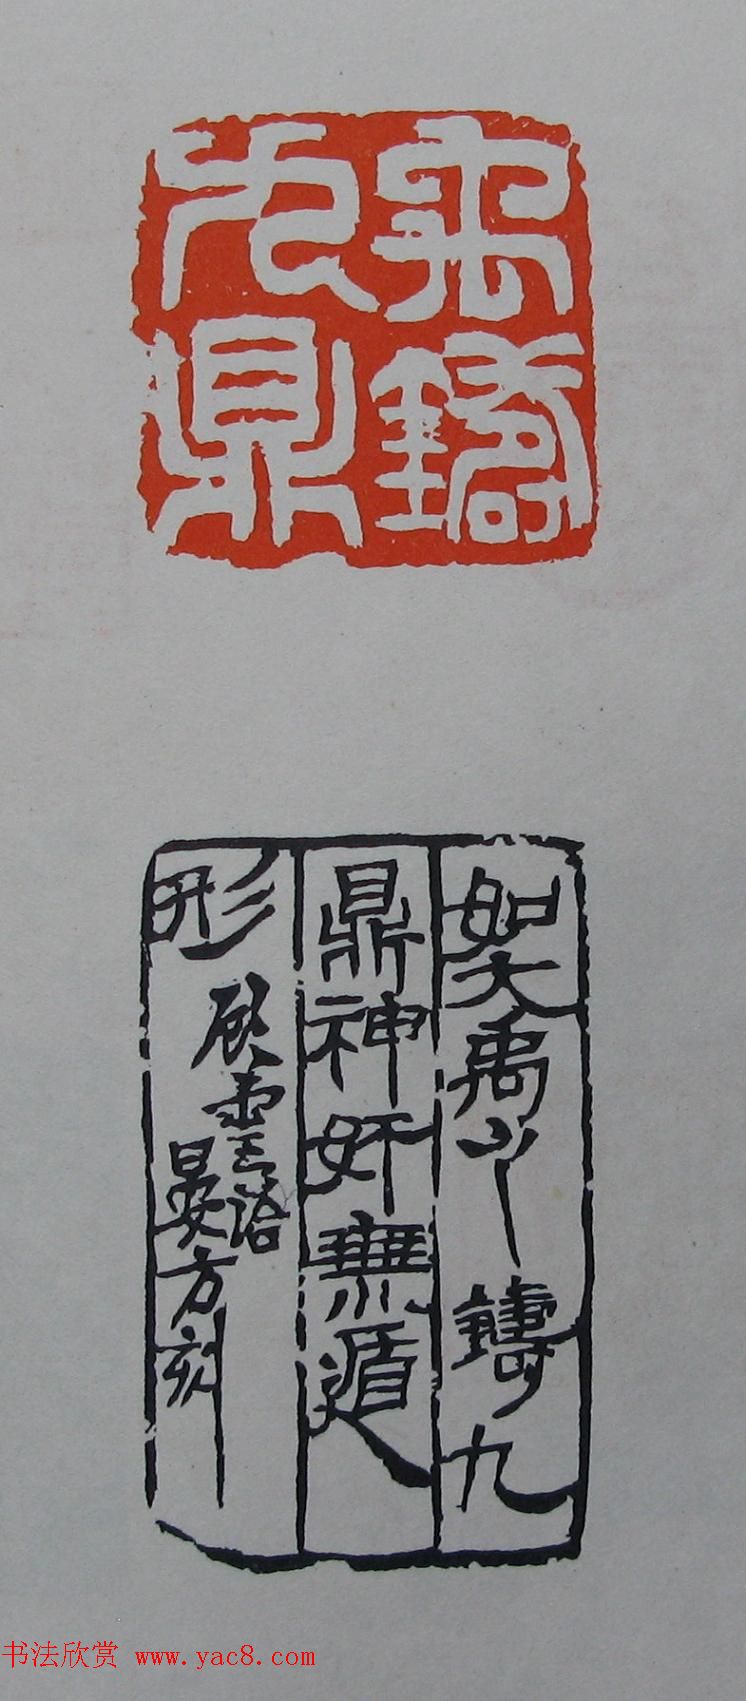 禹鑄
九鼎
如大禹之鑄九
鼎神奸無遁
形
晏方刻
书法欣赏 www.yac8.com